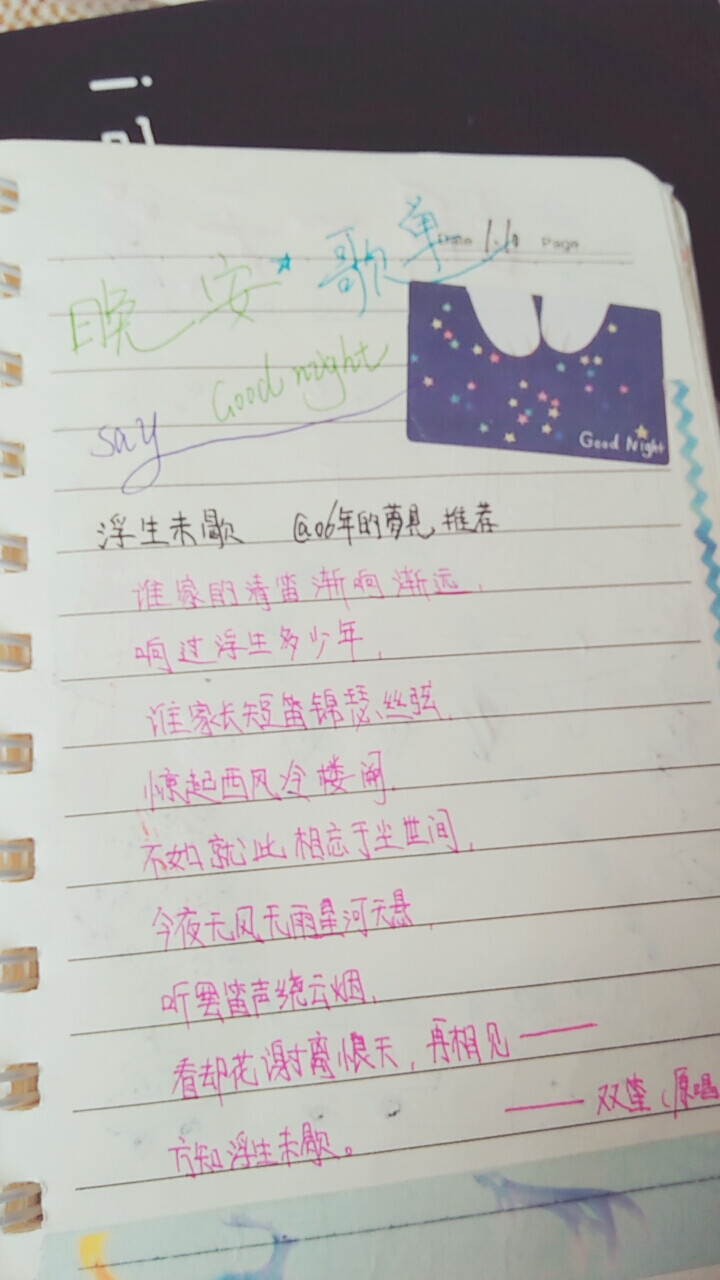 晚安 歌单
Date 1.10 Page
say Good night
Good Night
浮生未歇 @06年的夢見 推荐
谁家的清笛渐响渐远,
响过浮生多少年,
谁家长短笛锦瑟丝弦,
惊起西风冷楼阑,
不如就此相忘于尘世间,
今夜无风无雨星河天悬,
听罢笛声绕云烟,
看却花谢离恨天,再相见——
——双笙(原唱
方知浮生未歇。